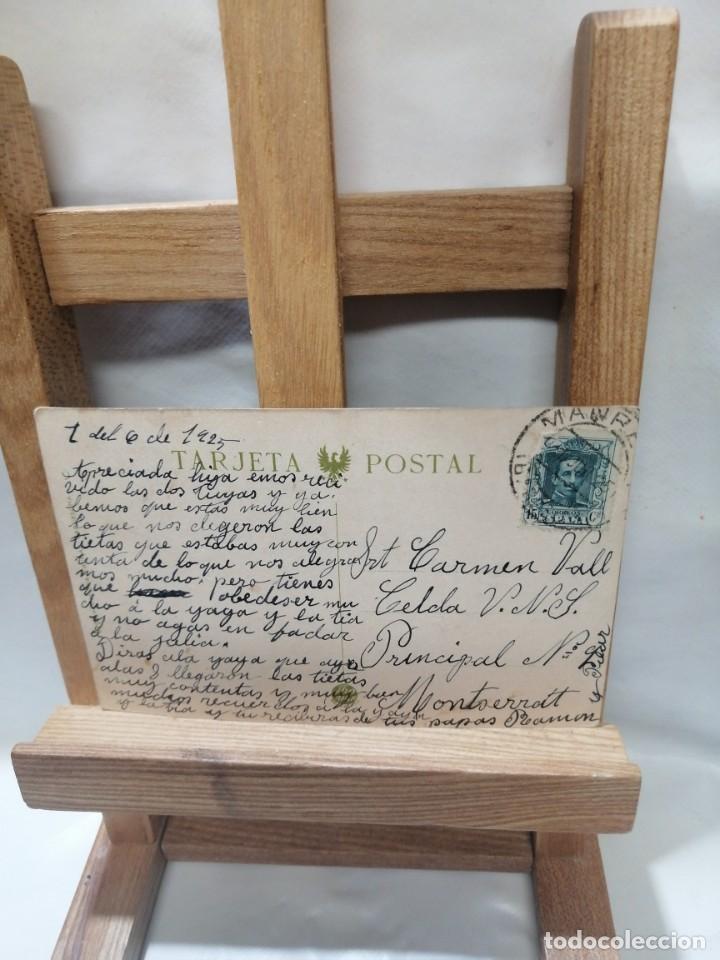 1 del 6 de 1925
TARJETA POSTAL
Apreciada hija emos reci
vido las dos tuyas y ya
bemos que estas muy bien
lo que nos degeron las
tietas que estabas muy con
tenta de lo que nos alegra
mos mucho, pero tienes
que obedeser mu
cho á la yaya y la tia
y no agas en fadar
a la julia.
Diras a la yaya que
alas 7 llegaron las tietas
muy contentas y muy bien
muchos recuerdos á la yaya
y la tia y tu reciviras de tus papas Ramon
y Pilar
MANRE
15 Cs
Srt Carmen Vall
Celda V.N.S.
Principal Nº 2
Montserrat
todocoleccion